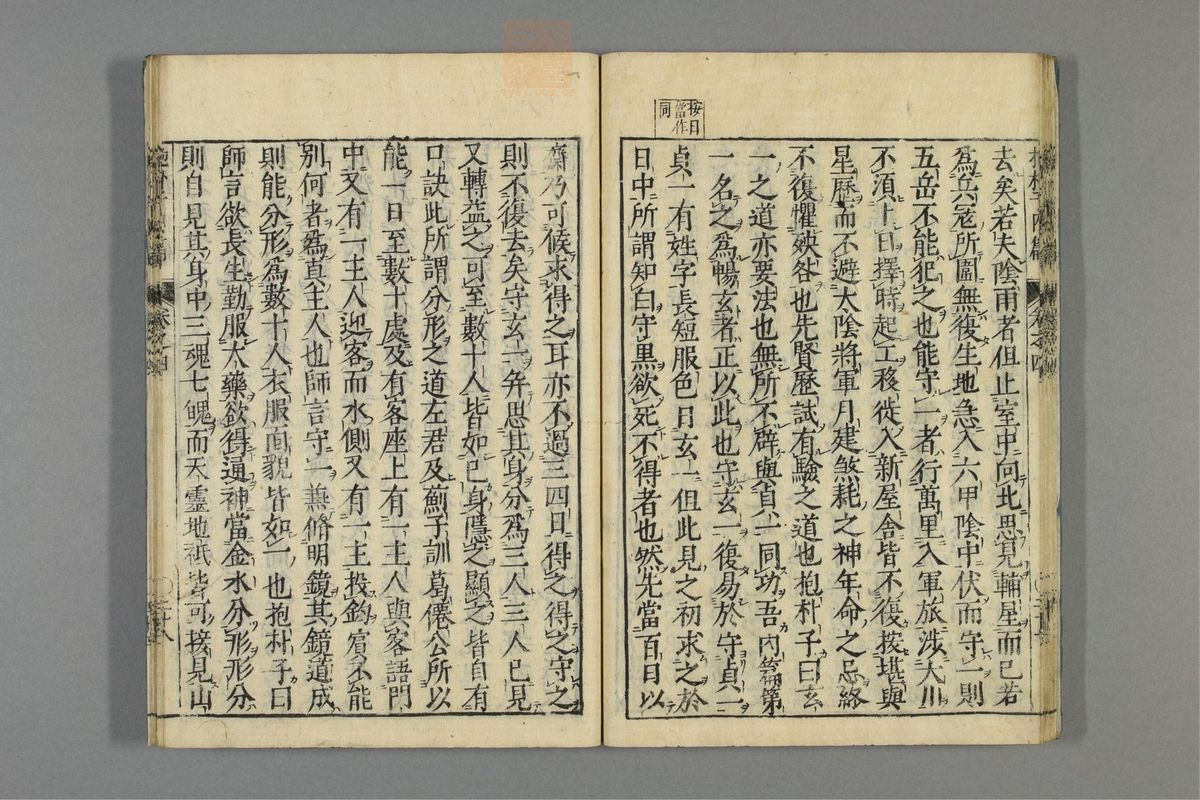 按日
當作
同
去矣若夫陰雨者但止室中向北思見輔星而已若
爲兵冦所圍無復生地急入六甲陰中伏而守一則
五岳不能犯之也能守一者行萬里入軍旅涉大川
不須卜日擇時起工移徙入新屋舎皆不復按堪輿
星曆而不避太陰將軍月建煞耗之神年命之忌終
不復懼殃咎也先賢歷試有驗之道也抱朴子曰玄
一之道亦要法也無所不辟與貞一同功吾内篇第
一名之爲暢玄者正以此也守玄一復易於守貞一
貞一有姓字長短服色日玄一但此見之初求之於
日中所謂知白守黑欲死不得者也然先當百日以
齋乃可候求得之耳亦不過三四日得之得之守之
則不復去矣守玄一并思其身分爲三人三人已見
又轉益之可至數十人皆如己身隱之顯之皆自有
口訣此所謂分形之道左君及薊子訓葛僊公所以
能一日至數十處及有客座上有一主人與客語門
中又有一主人迎客而水側又有一主投釣賔不能
別何者爲真主人也師言守一兼脩明鏡其鏡道成
則能分形爲數十人衣服面貌皆如一也抱朴子曰
師言欲長生勤服大藥欲得通神當金水分形形分
則自見其身中三魂七魄而天靈地祇皆可接見山